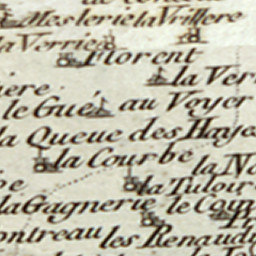 Meslerie la Vrillere
la Verrie
Florent
la Verr
iere
le Gué au Voyer
la Queue des Hayes
la Courbe
la No
la Tuloir
la Gagnerie le Coin
ontreau les Renaudi